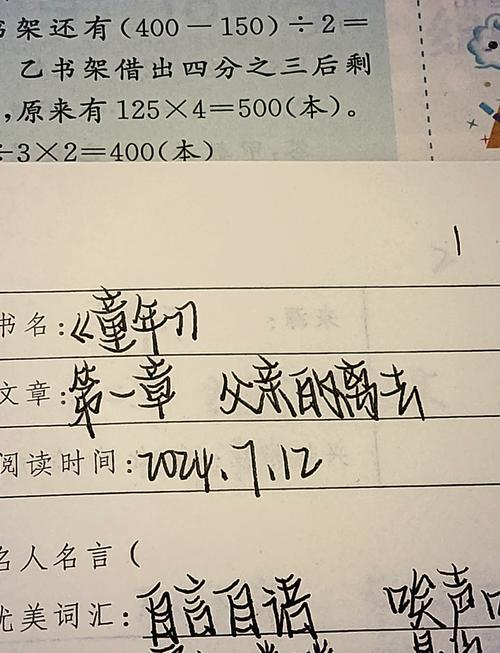 书架还有(400－150)÷2＝
乙书架借出四分之三后剩
,原来有125×4＝500(本)。
÷3×2＝400(本)
1
书名:《童年》
文章:第一章 父亲的离去
阅读时间:2024.7.12
名人名言(
优美词汇:自言自语 唉声